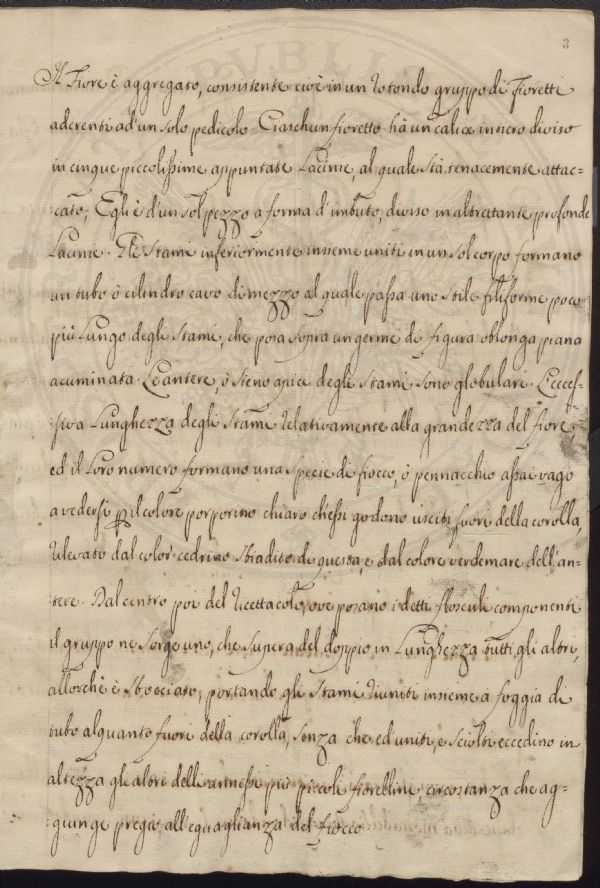 3
Il Fiore è aggregato, consistente cioè in un rotondo gruppo di Fioretti
aderenti ad un solo pedicolo. Ciaschun fioretto hà un calice intiero diviso
in cinque piccolissime appuntate Lacinie, al quale stà tenacemente attac=
cato; Egli è d'un sol pezzo a forma d'imbuto, diviso in altrettante profonde
Lacinie. Gli Stami inferiormente insieme uniti in un sol corpo formano
un tubo ò cilindro cavo di mezzo al quale passa uno stile filiforme poco
più Lungo degli Stami, che posa sopra un germe di figura oblonga piana
acuminata. Le antere, ò sieno apici degli Stami sono globulari. L'ecces=
siva Lunghezza degli Stami relativamente alla grandezza del fiore,
ed il Loro numero formano una specie di fiocco, ò pennacchio assai vago
a vedersi per il colore porporino chiaro chessi godono usciti fuori della corolla,
rilevato dal color cedrino sbiadito di questa, e dal colore verdemare dell'an=
tere. Dal centro poi del ricettacolo, ove posano i detti flosculi componenti
il gruppo ne sorge uno, che supera del doppio in Lunghezza tutti gli altri,
allorchè è sbocciato, portando gli Stami riuniti insieme a foggia di
tubo alquanto fuori della corolla, senza che ed uniti, e sciolti eccedino in
altezza gli altri delli annessi più piccoli fiorellini, circostanza che ag=
giunge pregio all'eguaglianza del fiocco